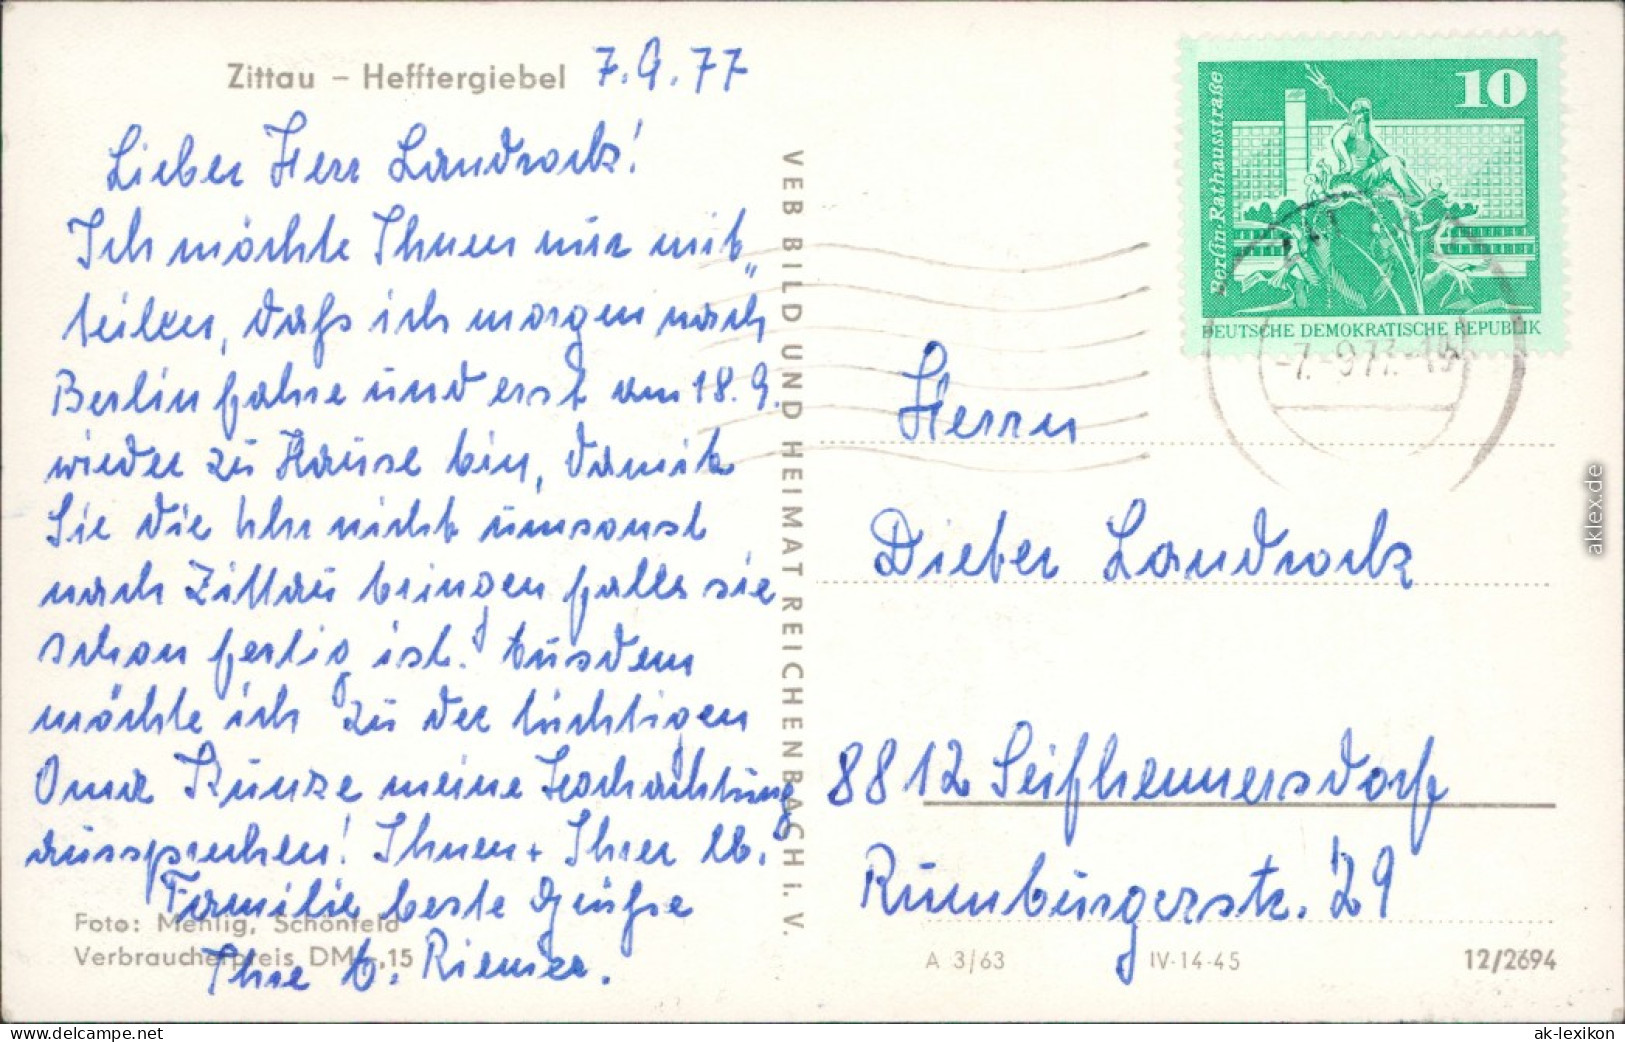 Zittau – Hefftergiebel 7.9.77
Lieber Herr Landrock!
Ich möchte Ihnen nur mit„
teilen, daß ich morgen nach
Berlin fahre und erst am 18.9.
wieder zu Hause bin, damit
Sie die Uhr nicht umsonst
nach Zittau bringen falls sie
schon fertig ist. Ausdem
möchte ich zu der tüchtigen
Oma Kunze meine Hochachtung
aussprechen! Ihnen + Ihrer lb.
Familie beste Grüße
Ihre E. Riemer.
Foto: Mehlig, Schönfeld
Verbraucherpreis DM -,15
VEB BILD UND HEIMAT REICHENBACH i. V.
10
Berlin·Rathausstraße
DEUTSCHE DEMOKRATISCHE REPUBLIK
-7.-9.77.-18
Herrn
Dieter Landrock
8812 Seifhennersdorf
Rumburgerstr. 29
A 3/63 IV-14-45 12/2694
aklex.de
www.delcampe.net ak-lexikon